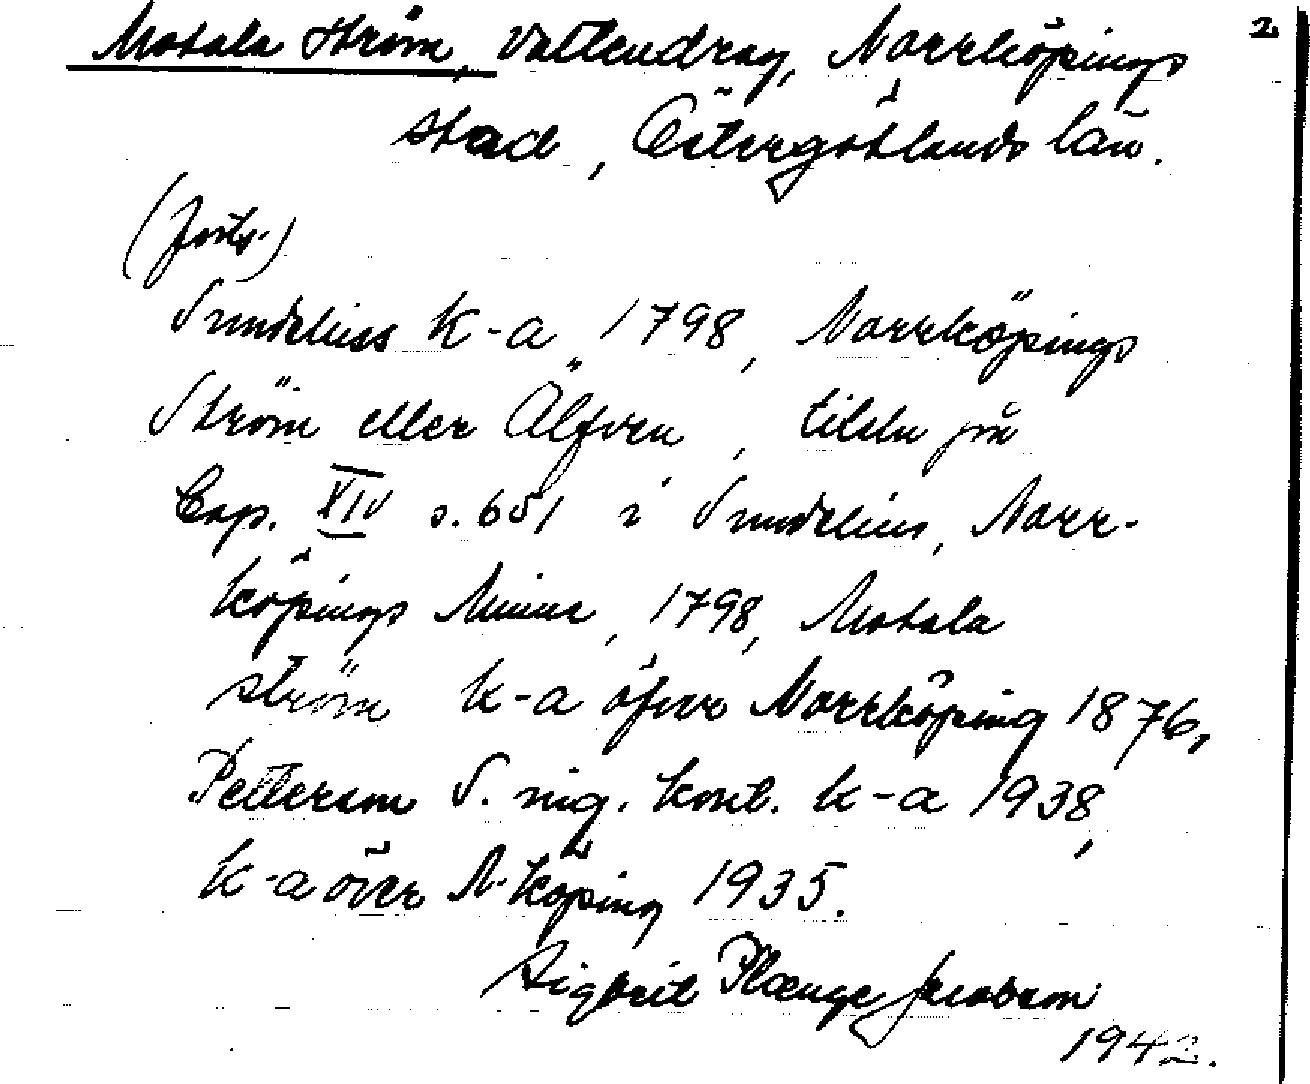 Motala Ström, vattendrag, Norrköpings 2
stad, Östergötlands län.
(forts.)
Sundeliuss k-a 1798, Norrköpings
Ström eller Älfven, titeln på
Cap. XIV s. 651 i Sundelius, Norr-
köpings Minne, 1798, Motala
ström k-a öfver Norrköping 1876,
Petterson S. reg. kont. k-a 1938,
k-a över N.köping 1935.
Sigbrit Plænge Jacobson
1942.